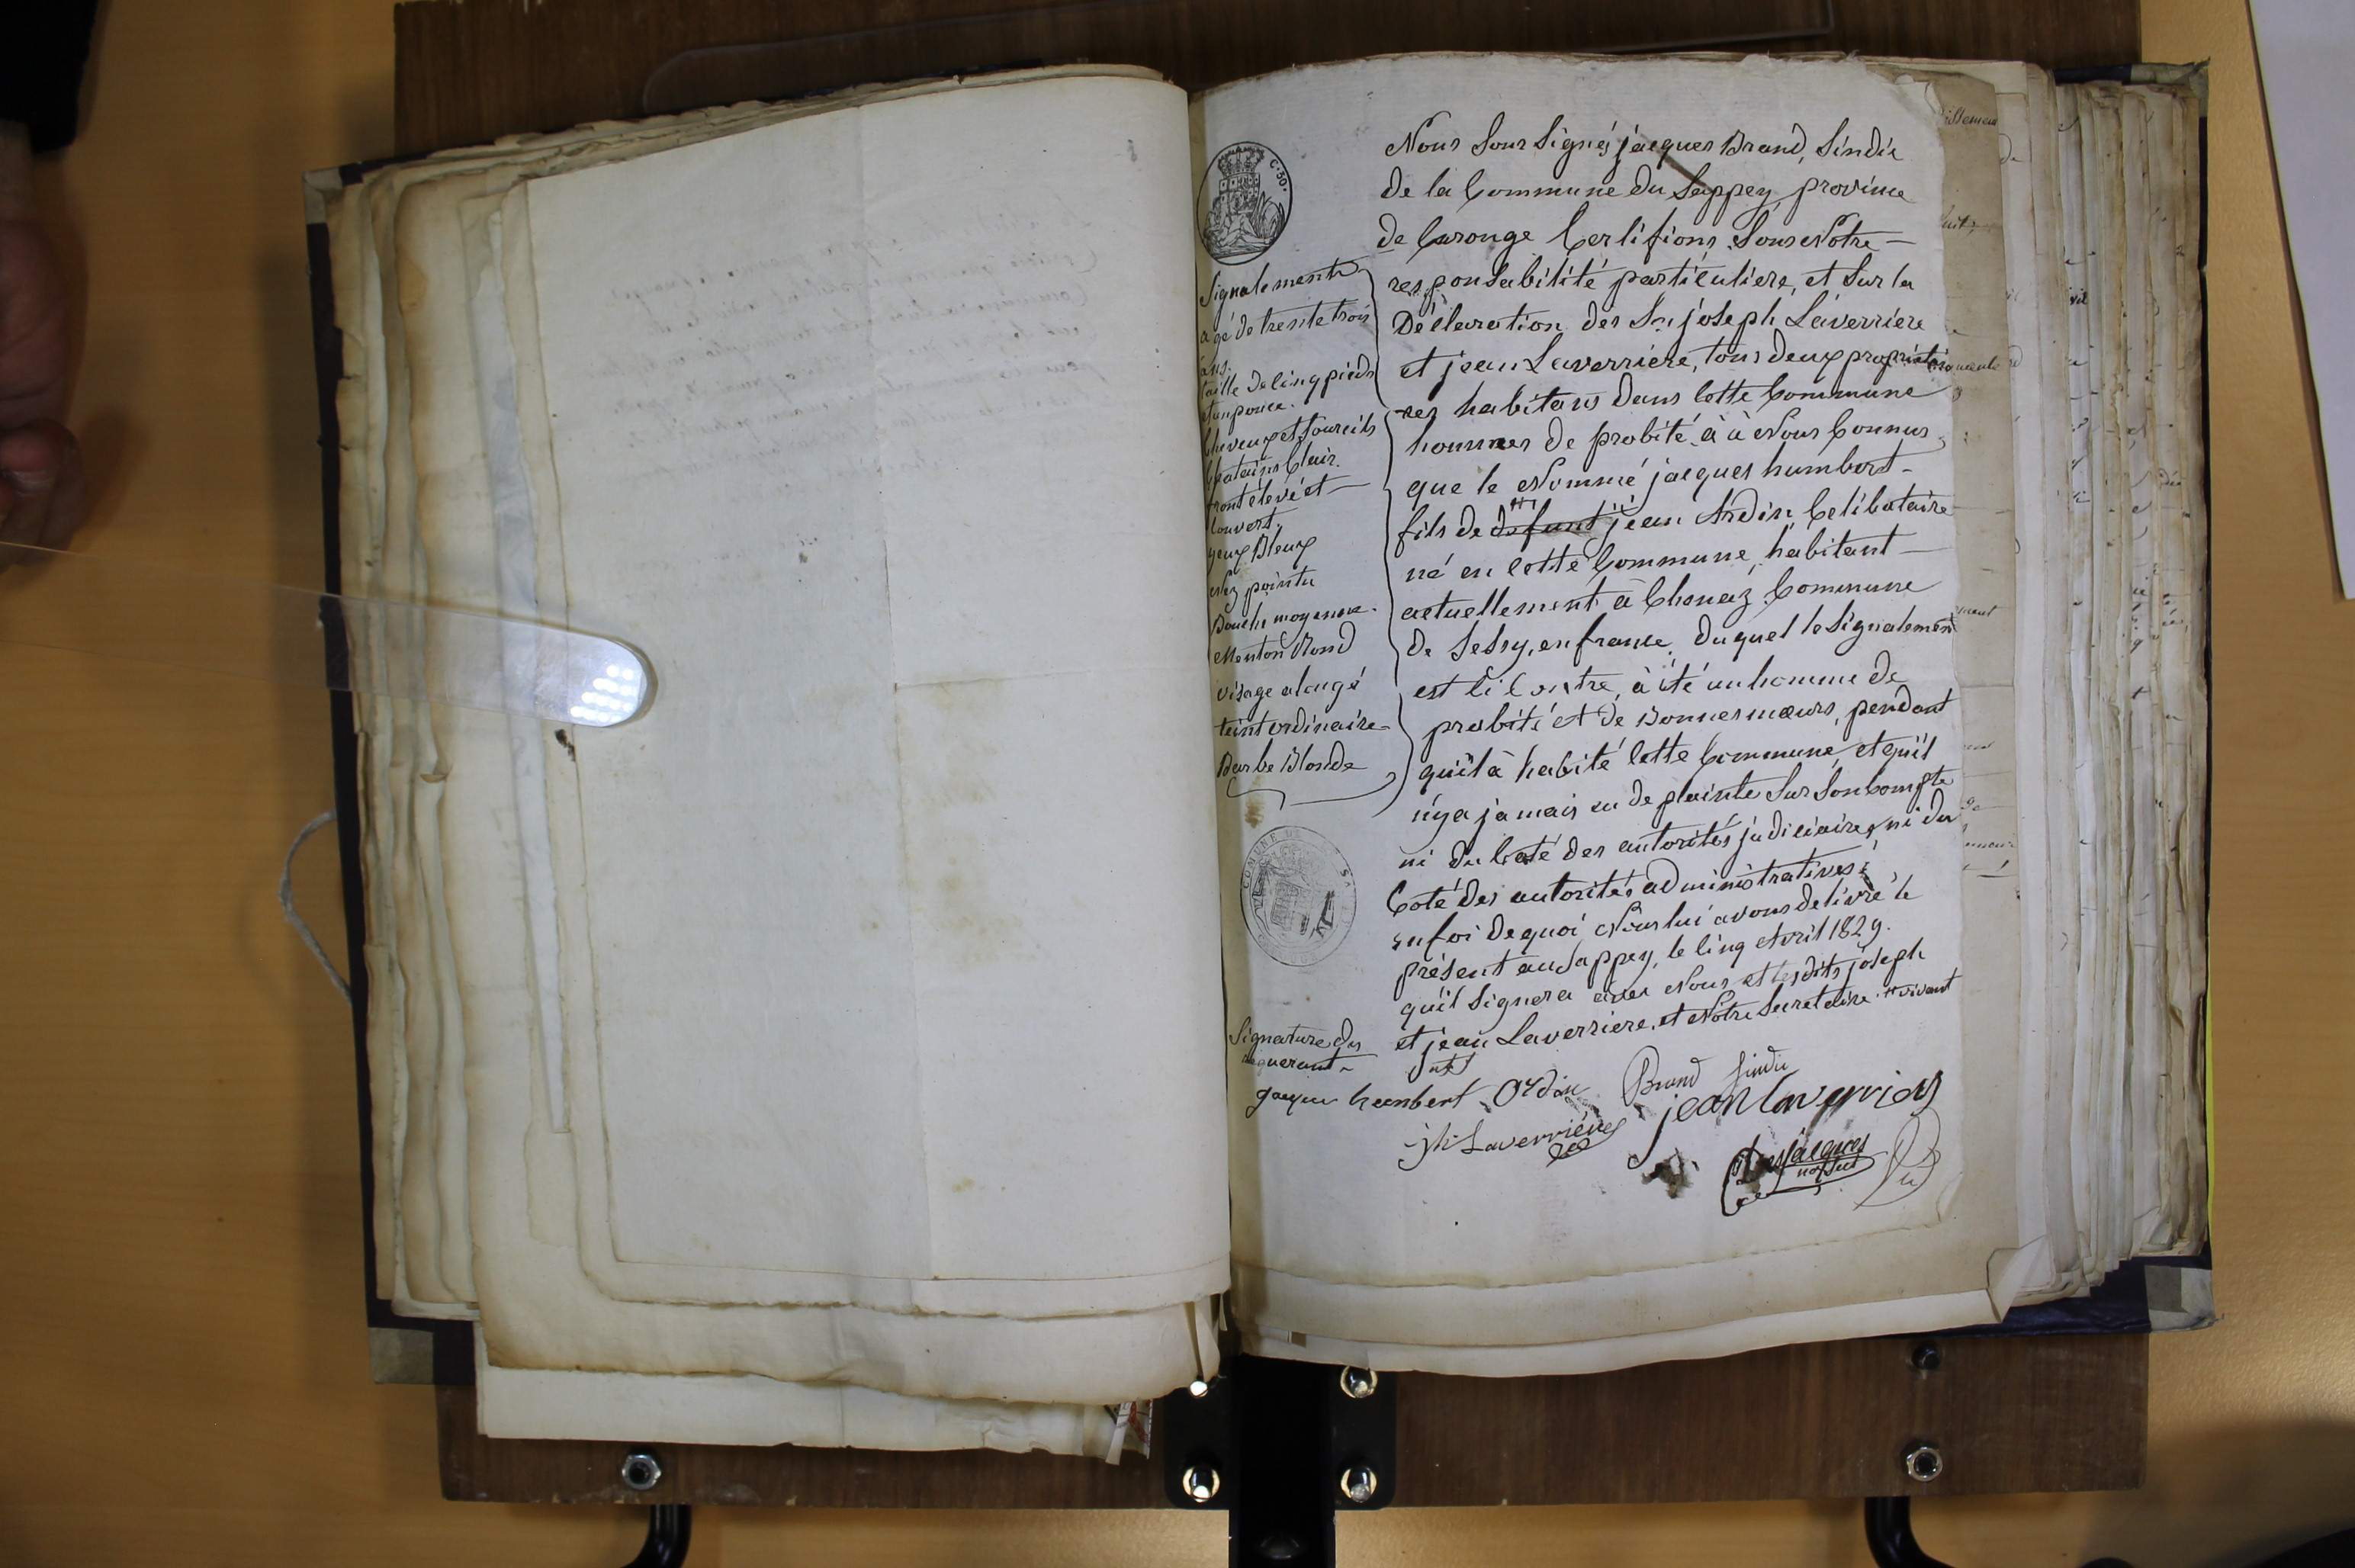 C. 50.
Nous Sous Signé, jacques Brand, Sindic
de la Commune du Sappey, province
de Carouge Certifions, Sous Notre
responsabilité particuliere, et Sur la
Déclaration des Srs joseph Laverriere
et jean Laverriere, tous deux proprietai
res habitans dans Cette Commune
hommes de probité à à Nous Connus,
que le Nommé jacques humbert
fils de defunt jean Ardin, Celibataire
né en Cette Commune, habitant
actuellement à Commune
de en france, duquel le Signalement
est Ci Contre, à été un homme de
probité et de Bonnes mœurs, pendant
qu'il à habité Cette Commune, et qu'il
n'y a jamais eu de plainte Sur Son Compte
ni du Coté des autorités judiciaires, ni du
Coté des autorités administratives;
en foi de quoi Nous lui avons delivré le
présent au Sappey, le Cinq Avril 1829.
qu'il Signera avec Nous et lesdits joseph
et jean Laverriere, et Notre Secretaire. vivant
Signalements
agé de trente trois
ans.
taille de Cinq pieds
et un pouce.
Cheveux et Sourcils
Chatains Clair.
front élevé et
Couvert.
yeux Bleux
Nez pointu
Bouche moyenne.
Menton Rond
visage alongé
teint ordinaire
Barbe Blonde
COMUNE DE SA
Signature du
requerant
jacques humbert Ordin
Brand Sindic
jean laverriere
jh Laverrière
Desjacques